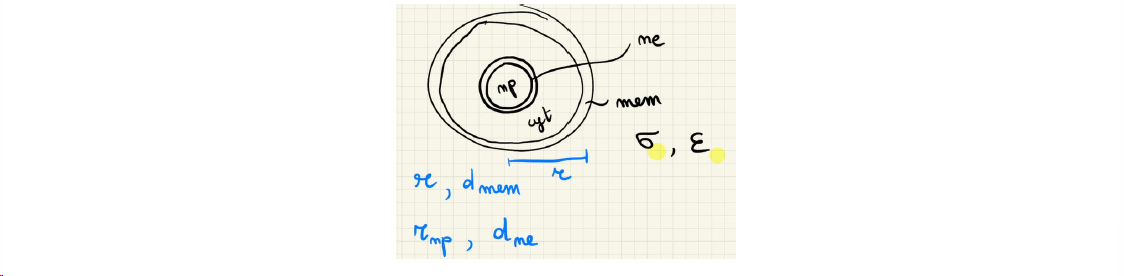 ne
np
mem
cyt
σ, ε
r
r, d mem
r np, d ne